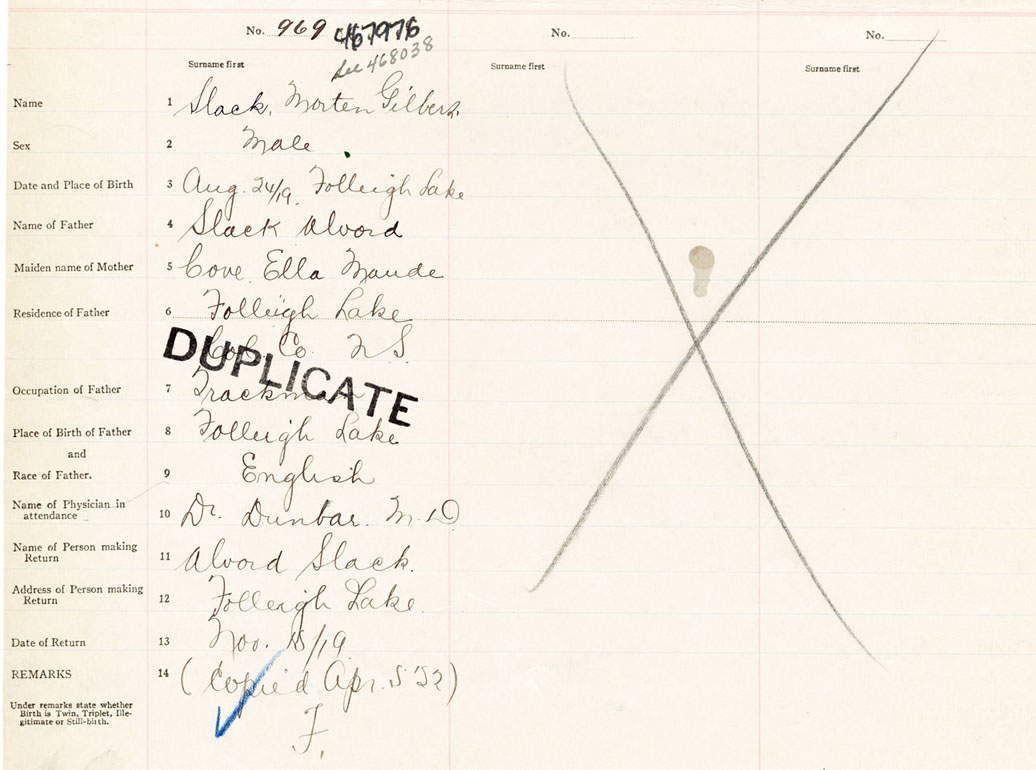 No. 969 467976
See 468038
No.
No.
Surname first
Surname first
Surname first
Name 1 Slack, Morten Gilbert.
Sex 2 Male
Date and Place of Birth 3 Aug. 24/19. Folleigh Lake
Name of Father 4 Slack Alvord
Maiden name of Mother 5 Cove Ella Maude
Residence of Father 6 Folleigh Lake
Col. Co. N S.
DUPLICATE
Occupation of Father 7 Trackman
Place of Birth of Father 8 Folleigh Lake
and
Race of Father. 9 English
Name of Physician in
attendance 10 Dr. Dunbar. M. D
Name of Person making
Return 11 Alvord Slack.
Address of Person making
Return 12 Folleigh Lake.
Date of Return 13 Nov. /19
REMARKS 14 (Copied Apr. 5 '22)
F.
Under remarks state whether
Birth is Twin, Triplet, Ille-
gitimate or Still-birth.